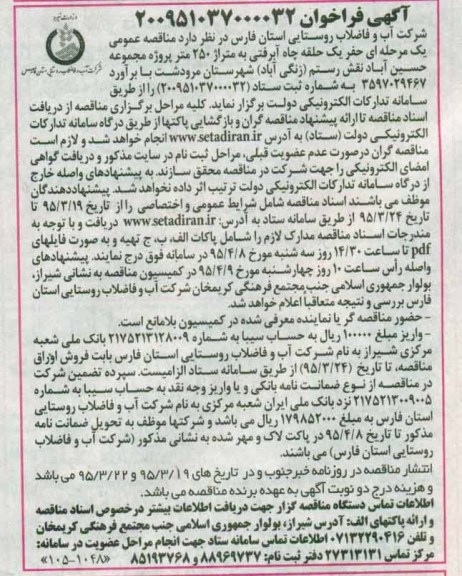 آگهی فراخوان ۲۰۰۹۵۱۰۳۷۰۰۰۰۰۳۲
شرکت آب و فاضلاب روستایی استان فارس در نظر دارد مناقصه عمومی
یک مرحله ای حفر یک حلقه چاه آبرفتی به متراژ ۲۵۰ متر پروژه مجموعه
حسین آباد نقش رستم (زنگی آباد) شهرستان مرودشت با برآورد
۳۵۹۷۰۲۹۴۶۷ به شماره ثبت ستاد (۲۰۰۹۵۱۰۳۷۰۰۰۰۰۳۲) را از طریق
سامانه تدارکات الکترونیکی دولت برگزار نماید. کلیه مراحل برگزاری مناقصه از دریافت
اسناد مناقصه تا ارائه پیشنهاد مناقصه گران و بازگشایی پاکتها از طریق درگاه سامانه تدارکات
الکترونیکی دولت (ستاد) به آدرس www.setadiran.ir انجام خواهد شد و لازم است
مناقصه گران درصورت عدم عضویت قبلی، مراحل ثبت نام در سایت مذکور و دریافت گواهی
امضای الکترونیکی را جهت شرکت در مناقصه محقق سازند. به پیشنهادهای واصله خارج
از درگاه سامانه تدارکات الکترونیکی دولت ترتیب اثر داده نخواهد شد. پیشنهاددهندگان
موظف می باشند اسناد مناقصه شامل شرایط عمومی و اختصاصی را از تاریخ ۹۵/۳/۱۹ تا
تاریخ ۹۵/۳/۲۴ از طریق سامانه ستاد به آدرس: www.setadiran.ir دریافت و با توجه به
مندرجات اسناد مناقصه مدارک لازم را شامل پاکات الف، ب، ج تهیه و به صورت فایلهای
pdf تا ساعت ۱۴/۳۰ روز سه شنبه مورخ ۹۵/۴/۸ در سامانه فوق درج نمایند. پیشنهادهای
واصله رأس ساعت ۱۰ روز چهارشنبه مورخ ۹۵/۴/۹ در کمیسیون مناقصه به نشانی شیراز،
بولوار جمهوری اسلامی جنب مجتمع فرهنگی کریمخان شرکت آب و فاضلاب روستایی استان
فارس بررسی و نتیجه متعاقبا اعلام خواهد شد.
- حضور مناقصه گر یا نماینده معرفی شده در کمیسیون بلامانع است.
- واریز مبلغ ۱۰۰۰۰۰ ریال به حساب سیبا به شماره ۲۱۷۵۲۱۳۱۲۸۰۰۹ بانک ملی شعبه
مرکزی شیراز به نام شرکت آب و فاضلاب روستایی استان فارس بابت فروش اوراق
مناقصه، تا تاریخ (۹۵/۳/۲۴) از طریق سامانه ستاد الزامیست. سپرده تضمین شرکت
در مناقصه از نوع ضمانت نامه بانکی و یا واریز وجه نقد به حساب سیبا به شماره
۲۱۷۵۲۱۳۰۰۹۰۰۵ نزد بانک ملی ایران شعبه مرکزی به نام شرکت آب و فاضلاب روستایی
استان فارس به مبلغ ۱۷۹۸۵۲۰۰۰ ریال می باشد و شرکتها موظف به تحویل ضمانت نامه
مذکور تا تاریخ ۹۵/۴/۸ در پاکت لاک و مهر شده به نشانی مذکور (شرکت آب و فاضلاب
روستایی استان فارس) می باشند.
انتشار مناقصه در روزنامه خبرجنوب و در تاریخ های ۹۵/۳/۱۹ و ۹۵/۳/۲۲ می باشد
و هزینه درج دو نوبت آگهی به عهده برنده مناقصه می باشد.
اطلاعات تماس دستگاه مناقصه گزار جهت دریافت اطلاعات بیشتر درخصوص اسناد مناقصه
و ارائه پاکتهای الف: آدرس شیراز، بولوار جمهوری اسلامی جنب مجتمع فرهنگی کریمخان و
تلفن ۰۷۱۳۲۲۹۰۴۱۶ اطلاعات تماس سامانه ستاد جهت انجام مراحل عضویت در سامانه:
مرکز تماس ۲۷۳۱۳۱۳۱ دفتر ثبت نام: ۸۸۹۶۹۷۳۷ و ۸۵۱۹۳۷۶۸ «۱۰۵-۱۰۴۸»